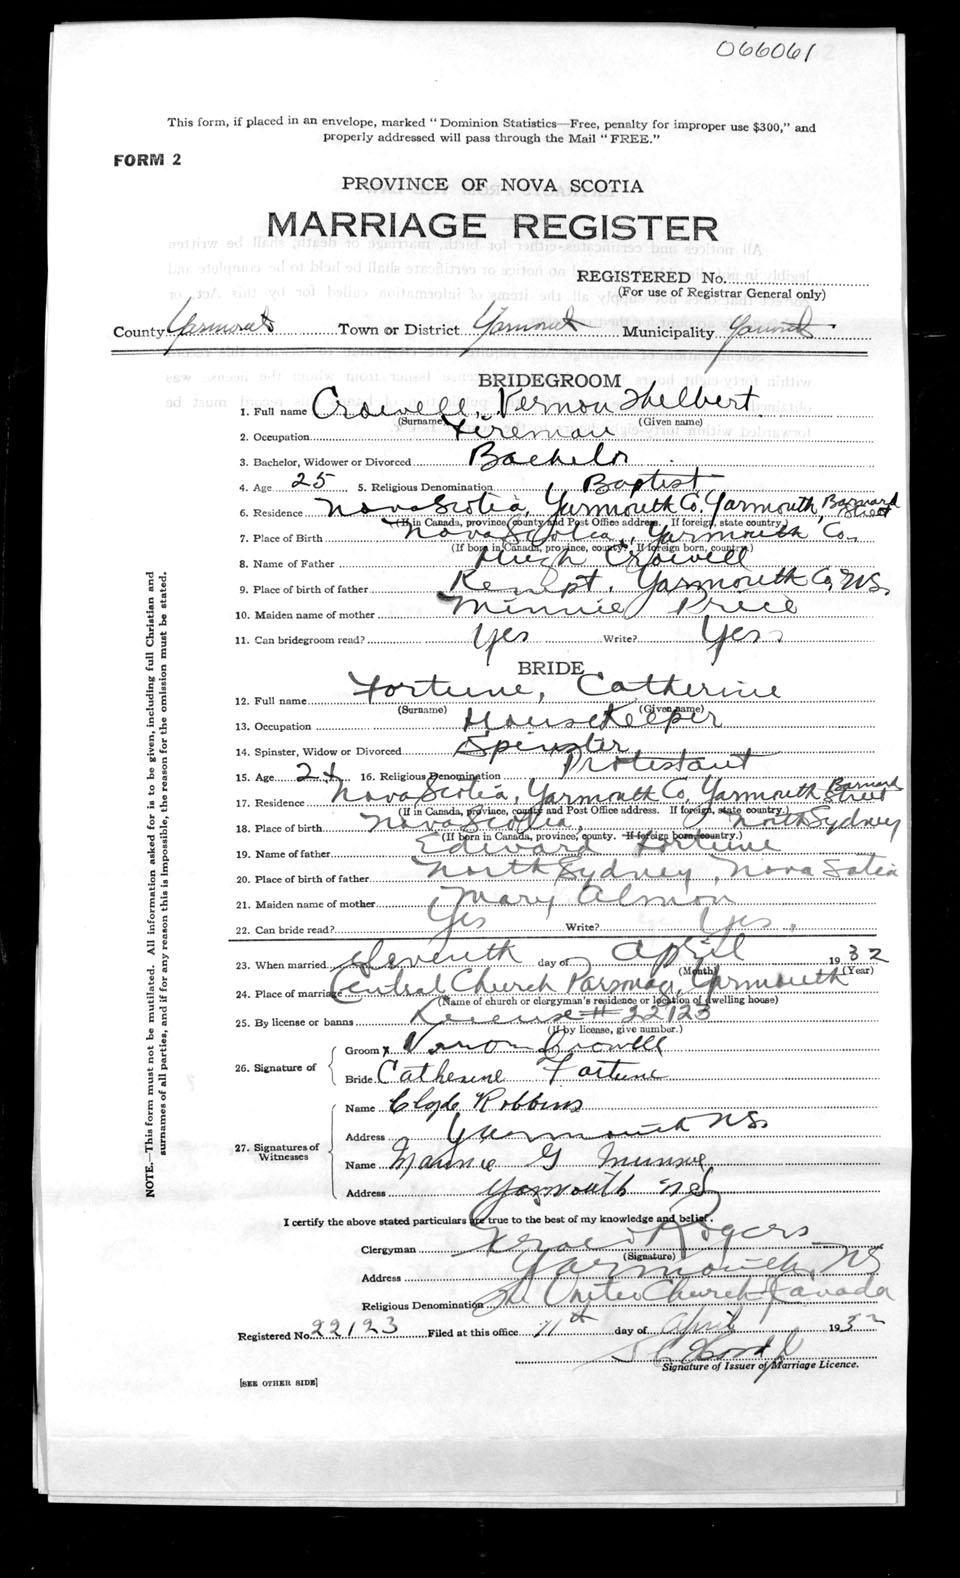 066061
This form, if placed in an envelope, marked "Dominion Statistics—Free, penalty for improper use $300," and
properly addressed will pass through the Mail "FREE."
FORM 2
PROVINCE OF NOVA SCOTIA
MARRIAGE REGISTER
REGISTERED No.
(For use of Registrar General only)
County Yarmouth Town or District Yarmouth Municipality Yarmouth
BRIDEGROOM
1. Full name Crowell, Vernon Thelbert
(Surname) (Given name)
2. Occupation Fireman
3. Bachelor, Widower or Divorced Bachelor
4. Age 25 5. Religious Denomination Baptist
6. Residence Nova Scotia, Yarmouth Co. Yarmouth, Barnard Street
(If in Canada, province, county and Post Office address. If foreign, state country.)
7. Place of Birth Nova Scotia, Yarmouth Co.
(If born in Canada, province, county. If foreign born, country.)
8. Name of Father Hugh Crowell
9. Place of birth of father Kempt, Yarmouth Co, N.S.
10. Maiden name of mother Minnie Price
11. Can bridegroom read? Yes Write? Yes
BRIDE
12. Full name Fortune, Catherine
(Surname) (Given name)
13. Occupation Housekeeper
14. Spinster, Widow or Divorced Spinster
15. Age 24 16. Religious Denomination Protestant
17. Residence Nova Scotia, Yarmouth Co, Yarmouth Barnard Street
(If in Canada, province, county and Post Office address. If foreign, state country.)
18. Place of birth Nova Scotia, North Sydney
(If born in Canada, province, county. If foreign born, country.)
19. Name of father Edward Fortune
20. Place of birth of father North Sydney, Nova Scotia
21. Maiden name of mother Mary Almon
22. Can bride read? Yes Write? Yes
23. When married Eleventh day of April 1932
(Month) (Year)
24. Place of marriage Central Church Parsonage, Yarmouth
(Name of church or clergyman's residence or location of dwelling house)
25. By license or banns License # 22123
(If by license, give number.)
26. Signature of
Groom x Vernon Crowell
Bride Catherine Fortune
27. Signatures of Witnesses
Name Clyde Robbins
Address Yarmouth NS.
Name G Munroe
Address Yarmouth N.S.
I certify the above stated particulars are true to the best of my knowledge and belief.
Clergyman Rogers
(Signature)
Address Yarmouth, NS
Religious Denomination The United Church of Canada
Registered No. 22123 Filed at this office 11th day of April 1932
Signature of Issuer of Marriage Licence.
[SEE OTHER SIDE]
NOTE.—This form must not be mutilated. All information asked for is to be given, including full Christian and
surnames of all parties, and if for any reason this is impossible, the reason for the omission must be stated.